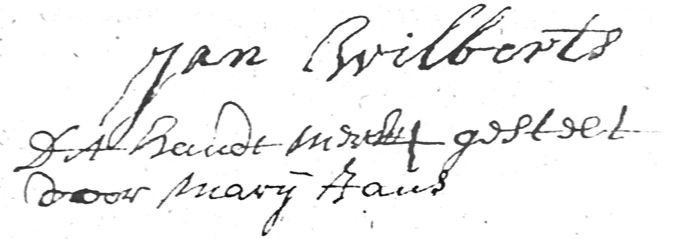 Jan Wilberts
Dit handt merck gestelt
door Marij Hans